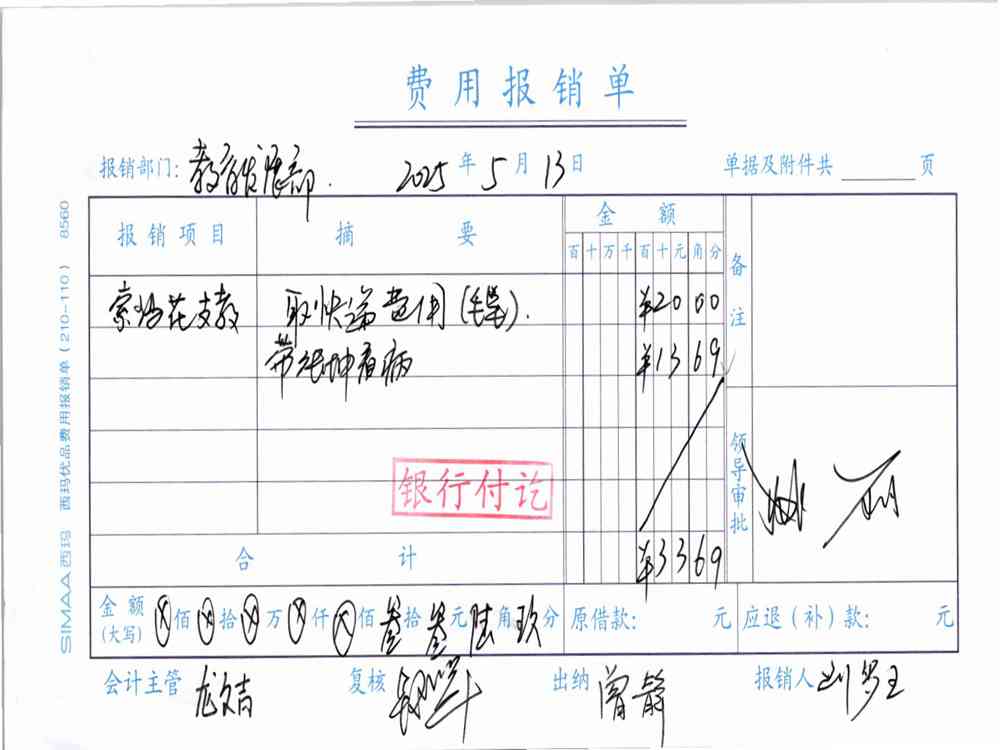 费用报销单
报销部门: 教育发展部. 2025年5月13日 单据及附件共 页
报销项目 摘要 金额 备注
百十万千百十元角分
索玛花支教 取快递费用 ¥20 00
看病 ¥13 69
领导审批
银行付讫
合计 ¥33 69
金额(大写) ⊗佰⊗拾⊗万⊗仟⊗佰叁拾叁元陆角玖分 原借款: 元 应退(补)款: 元
会计主管 复核 出纳 曾静 报销人
SIMAA西玛 西玛优品费用报销单(210-110) 8560